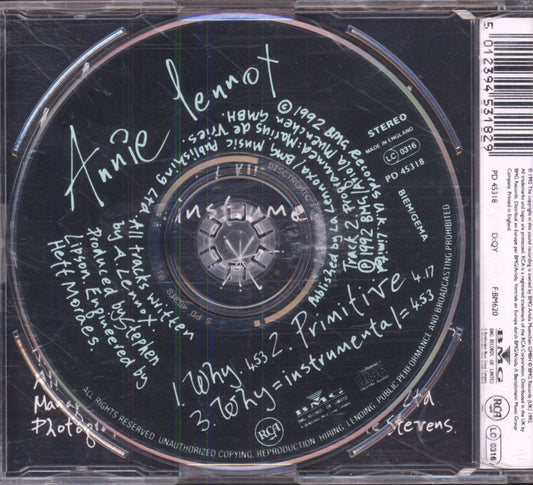 Annie Lennox
STEREO
MADE IN ENGLAND
LC 0316
PD 45318
BIEM/GEMA
1. Why 4.53 2. Primitive 4.17
3. Why = instrumental = 4.53
All tracks written
by A. Lennox.
Produced by Stephen
Lipson. Engineered by
Heff Moraes.
Published by La Lennoxa/BMG Music Publishing Ltd
Track 2. Programmed: Marius de Vries.
©1992 BMG Ariola Muenchen GMBH.
BMG
RECORDS (UK) LIMITED
RCA
ALL RIGHTS RESERVED. UNAUTHORIZED COPYING, REPRODUCTION, HIRING, LENDING, PUBLIC PERFORMANCE AND BROADCASTING PROHIBITED
instrume
All
Mana
Photogr
Ltd
Stevens.
5 012394 531829
PD 45318
D:QY
F:BM620
BMG
RCA
LC 0316